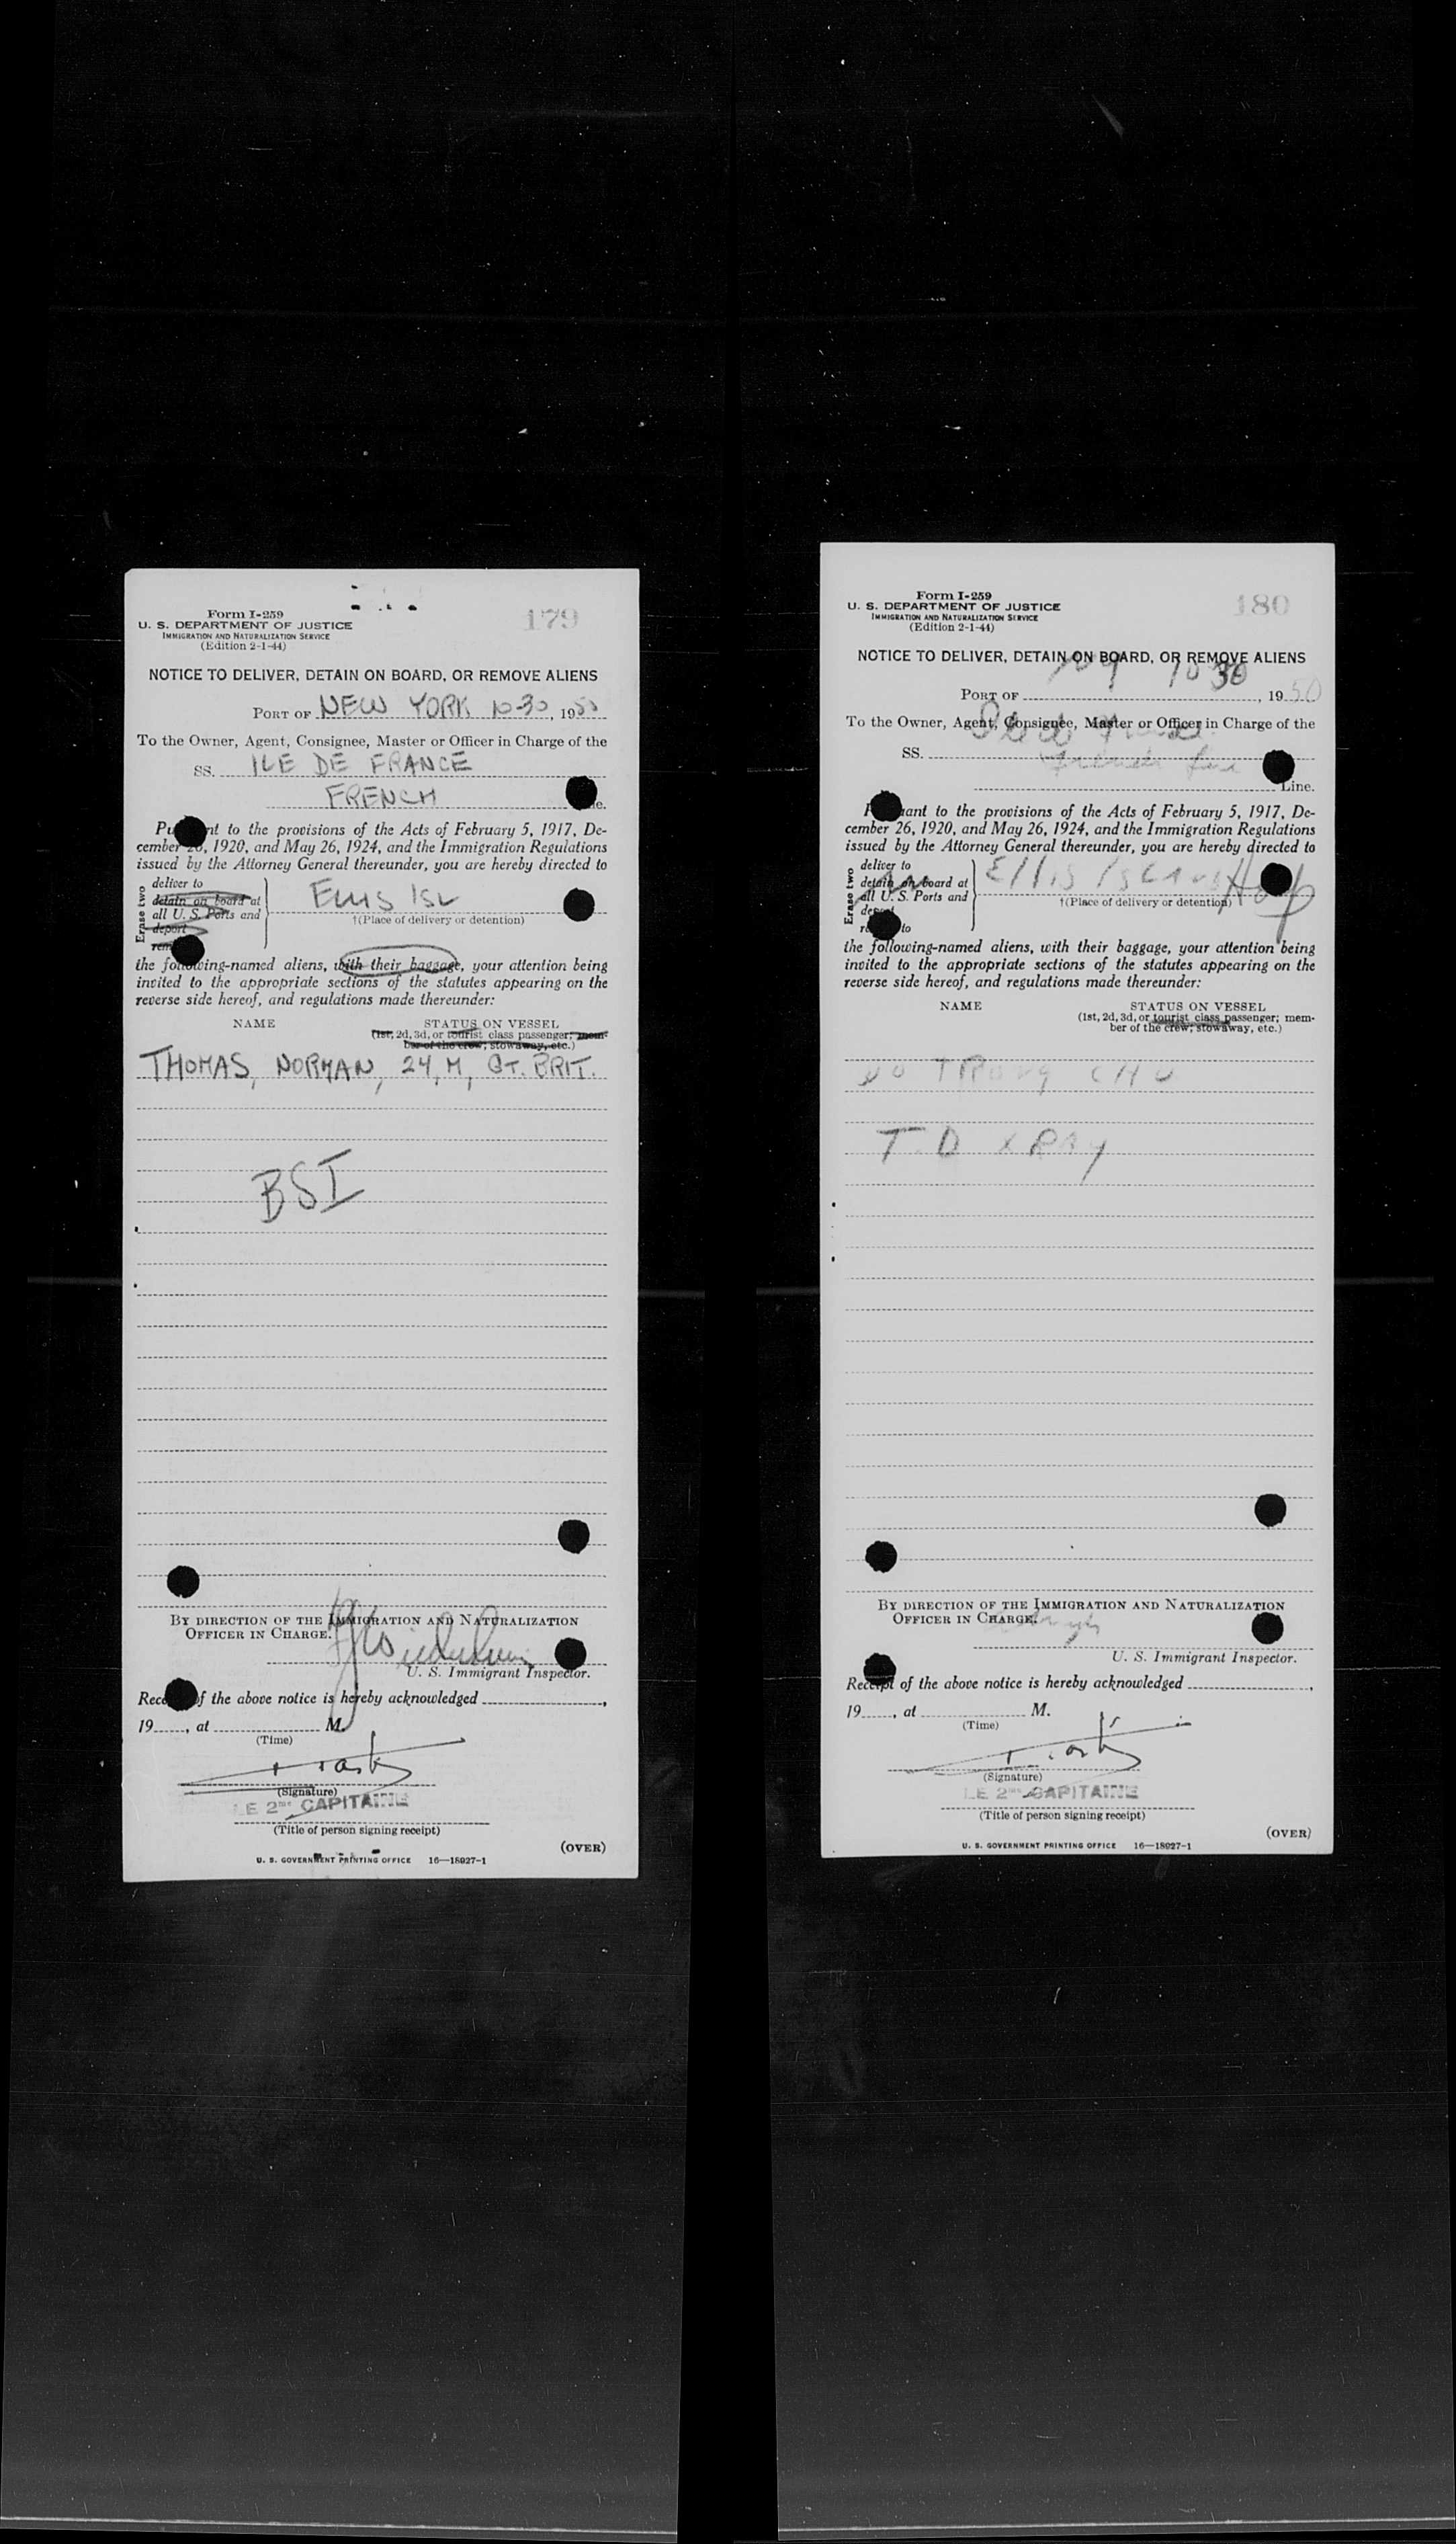 Form I-259
U. S. DEPARTMENT OF JUSTICE
IMMIGRATION AND NATURALIZATION SERVICE
(Edition 2-1-44)
179
NOTICE TO DELIVER, DETAIN ON BOARD, OR REMOVE ALIENS
PORT OF NEW YORK 10-30, 1950
To the Owner, Agent, Consignee, Master or Officer in Charge of the
SS. ILE DE FRANCE
FRENCH
to the provisions of the Acts of February 5, 1917, De-
cember 26, 1920, and May 26, 1924, and the Immigration Regulations
issued by the Attorney General thereunder, you are hereby directed to
Erase two
deliver to
detain on board at
all U. S. Ports and
deport
ELLIS ISL
†(Place of delivery or detention)
the following-named aliens, with their baggage, your attention being
invited to the appropriate sections of the statutes appearing on the
reverse side hereof, and regulations made thereunder:
NAME
STATUS ON VESSEL
(1st, 2d, 3d, or tourist class passenger; mem-
ber of the crew; stowaway, etc.)
THOMAS, NORMAN, 24, M, GT. BRIT.
BSI
BY DIRECTION OF THE IMMIGRATION AND NATURALIZATION
OFFICER IN CHARGE.
U. S. Immigrant Inspector.
of the above notice is hereby acknowledged
19 , at M.
(Time)
(Signature)
LE 2me CAPITAINE
(Title of person signing receipt)
(OVER)
U. S. GOVERNMENT PRINTING OFFICE 16—18927-1
Form I-259
U. S. DEPARTMENT OF JUSTICE
IMMIGRATION AND NATURALIZATION SERVICE
(Edition 2-1-44)
180
NOTICE TO DELIVER, DETAIN ON BOARD, OR REMOVE ALIENS
PORT OF 10 30, 1950
To the Owner, Agent, Consignee, Master or Officer in Charge of the
SS.
French Line
Line.
to the provisions of the Acts of February 5, 1917, De-
cember 26, 1920, and May 26, 1924, and the Immigration Regulations
issued by the Attorney General thereunder, you are hereby directed to
Erase two
deliver to
detain on board at
all U. S. Ports and
to
Ellis Island Hosp
†(Place of delivery or detention)
the following-named aliens, with their baggage, your attention being
invited to the appropriate sections of the statutes appearing on the
reverse side hereof, and regulations made thereunder:
NAME
STATUS ON VESSEL
(1st, 2d, 3d, or tourist class passenger; mem-
ber of the crew; stowaway, etc.)
CHU
T.D X RAY
BY DIRECTION OF THE IMMIGRATION AND NATURALIZATION
OFFICER IN CHARGE.
U. S. Immigrant Inspector.
Receipt of the above notice is hereby acknowledged
19 , at M.
(Time)
(Signature)
LE 2me CAPITAINE
(Title of person signing receipt)
(OVER)
U. S. GOVERNMENT PRINTING OFFICE 16—18927-1